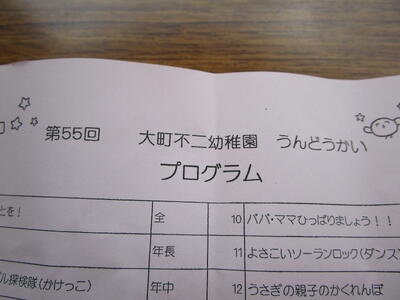 第55回 大町不二幼稚園 うんどうかい
プログラム
とを! 全 10 パパ・ママひっぱりましょう!!
年長 11 よさこいソーランロック(ダンス)
ル探検隊(かけっこ) 年中 12 うさぎの親子のかくれんぼ